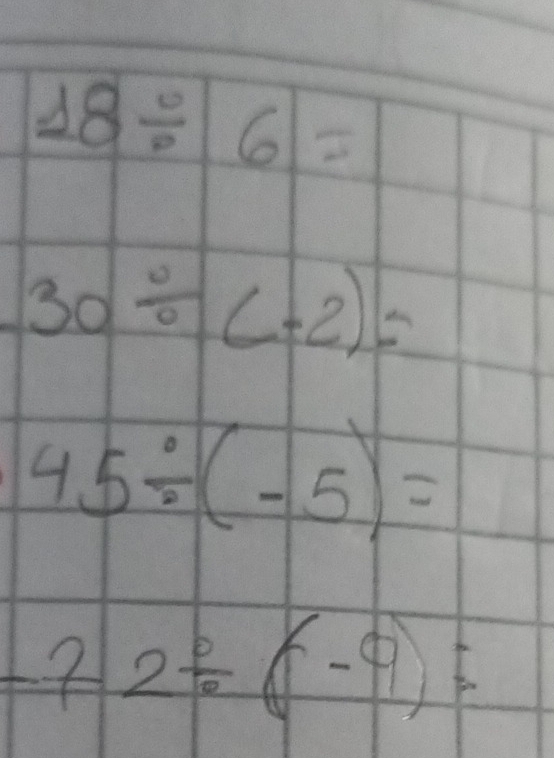 18 ÷ 6 =
-30 ÷ (-2) =
45 ÷ (-5) =
-72 ÷ (-9) =